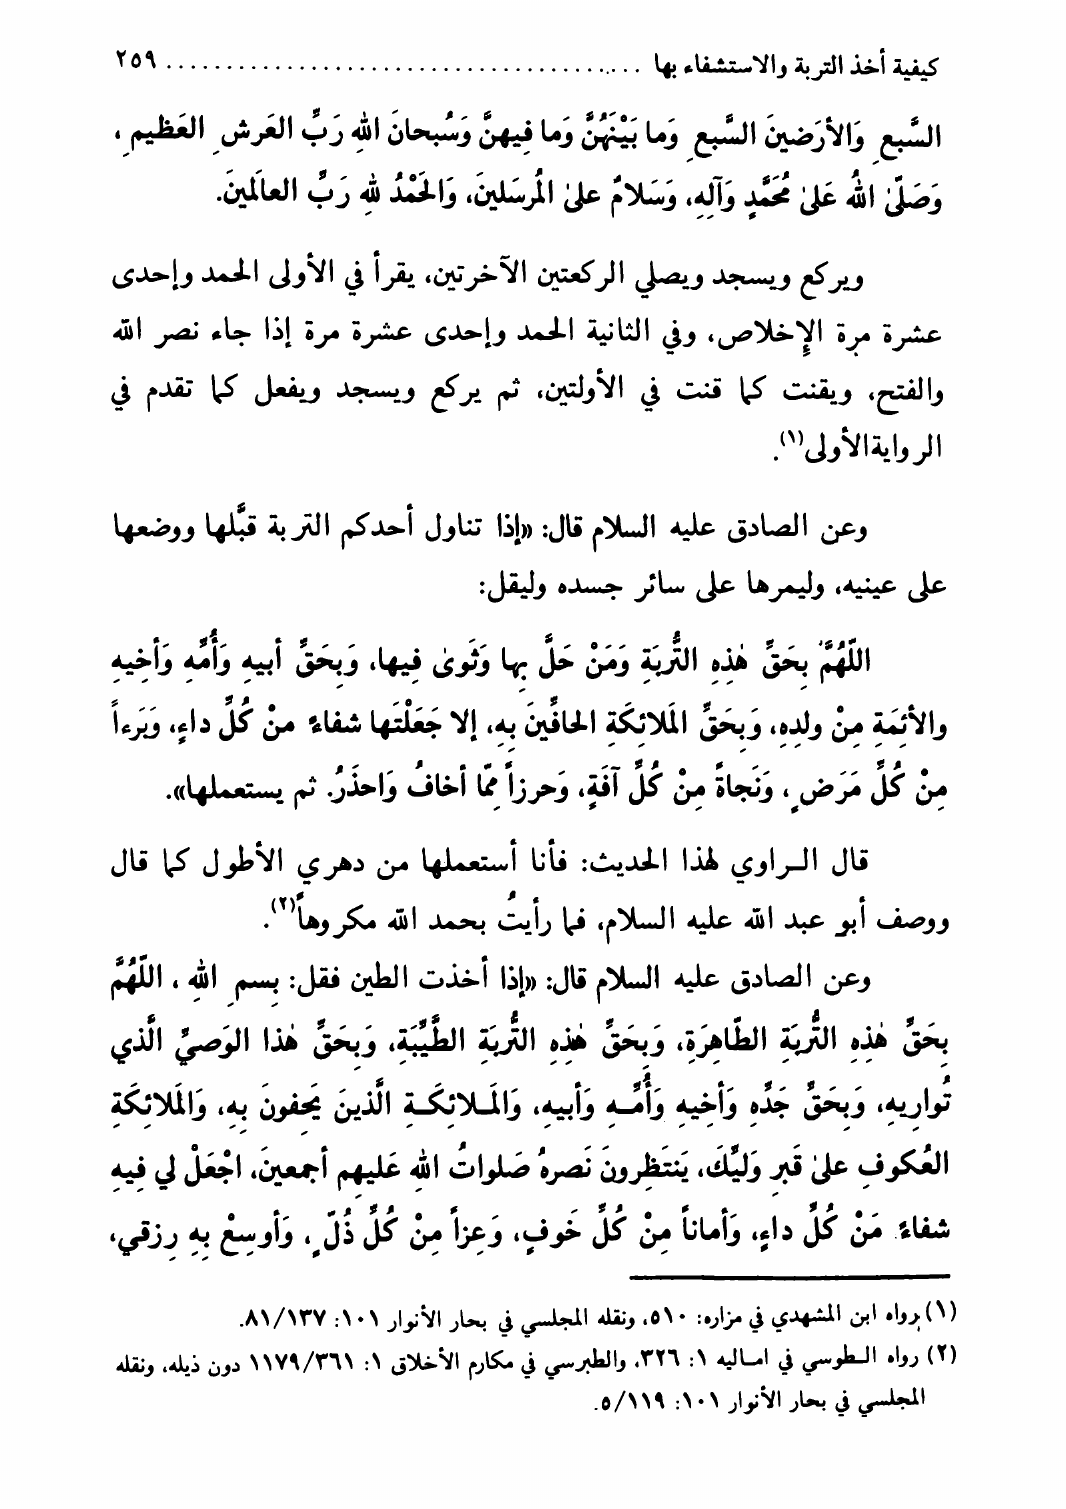 كيفية أخذ التربة والاستشفاء بها ........................................ ٢٥٩
السَّبعِ وَالأرَضينَ السَّبعِ وَما بَيْنَهُنَّ وَما فيهنَّ وَسُبحانَ اللهِ رَبِّ العَرشِ العَظيمِ،
وَصَلّىٰ اللهُ عَلىٰ مُحَمَّدٍ وَآلِهِ، وَسَلامٌ علىٰ المُرسَلينَ، وَالحَمْدُ للهِ رَبِّ العالَمينَ.
ويركع ويسجد ويصلي الركعتين الآخرتين، يقرأ في الأولى الحمد وإحدى
عشرة مرة الإخلاص، وفي الثانية الحمد وإحدى عشرة مرة إذا جاء نصر الله
والفتح، ويقنت كما قنت في الأولتين، ثم يركع ويسجد ويفعل كما تقدم في
الرواية الأولى(١).
وعن الصادق عليه السلام قال: «إذا تناول أحدكم التربة قبَّلها ووضعها
على عينيه، وليمرها على سائر جسده وليقل:
اللّهُمَّ بِحَقِّ هٰذِهِ التُّربَةِ وَمَنْ حَلَّ بِها وَثَوىٰ فِيها، وَبِحَقِّ أبيهِ وَأُمِّهِ وَأخيهِ
والأئِمَةِ مِنْ ولدِهِ، وَبِحَقِّ المَلائِكَةِ الحافّينَ بِهِ، إلا جَعَلْتَها شفاءً منْ كُلِّ داءٍ، وَبَرءاً
مِنْ كُلِّ مَرَضٍ، وَنَجاةً مِنْ كُلِّ آفَةٍ، وَحرزاً مِمّا أخافُ وَاحذَرُ. ثم يستعملها».
قال الراوي لهذا الحديث: فأنا أستعملها من دهري الأطول كما قال
ووصف أبو عبد الله عليه السلام، فما رأيتُ بحمد الله مكروهاً(٢).
وعن الصادق عليه السلام قال: «إذا أخذت الطين فقل: بِسمِ اللهِ، اللّهُمَّ
بِحَقِّ هٰذِهِ التُّربَةِ الطّاهِرَةِ، وَبِحَقِّ هٰذِهِ التُّربَةِ الطَّيِّبَةِ، وَبِحَقِّ هٰذا الوَصيِّ الَّذي
تُوارِيهِ، وَبِحَقِّ جَدِّهِ وَأخيهِ وَأُمِّهِ وَأبيهِ، وَالمَلائِكَةِ الَّذينَ يَحِفونَ بِهِ، وَالمَلائِكَةِ
العُكوفِ علىٰ قَبرِ وَليِّكَ، يَنتَظِرونَ نَصرهُ صَلواتُ اللهِ عَليهِم أجمعينَ، اجْعَلْ لي فيهِ
شفاءً مَنْ كُلِّ داءٍ، وَأماناً مِنْ كُلِّ خَوفٍ، وَعِزاً مِنْ كُلِّ ذُلّ ٍ، وَأوسِعْ بِهِ رِزقي،
(١) رواه ابن المشهدي في مزاره: ٥١٠، ونقله المجلسي في بحار الأنوار ١٠١: ٨١/١٣٧.
(٢) رواه الطوسي في اماليه ١: ٣٢٦، والطبرسي في مكارم الأخلاق ١: ١١٧٩/٣٦١ دون ذيله، ونقله
المجلسي في بحار الأنوار ١٠١: ٥/١١٩.